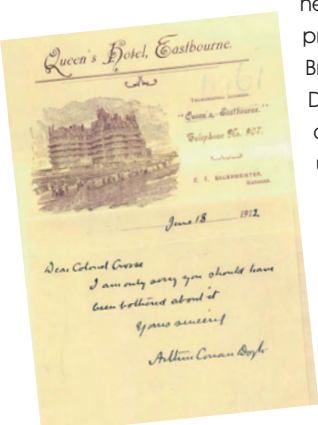 Queen's Hotel, Eastbourne.
Telegraphic Address:
"Queen's, Eastbourne."
Telephone No. 907.
Manager.
June 18 1912
Dear Colonel
I am only sorry you should have
been bothered about it
Yours sincerely
Arthur Conan Doyle